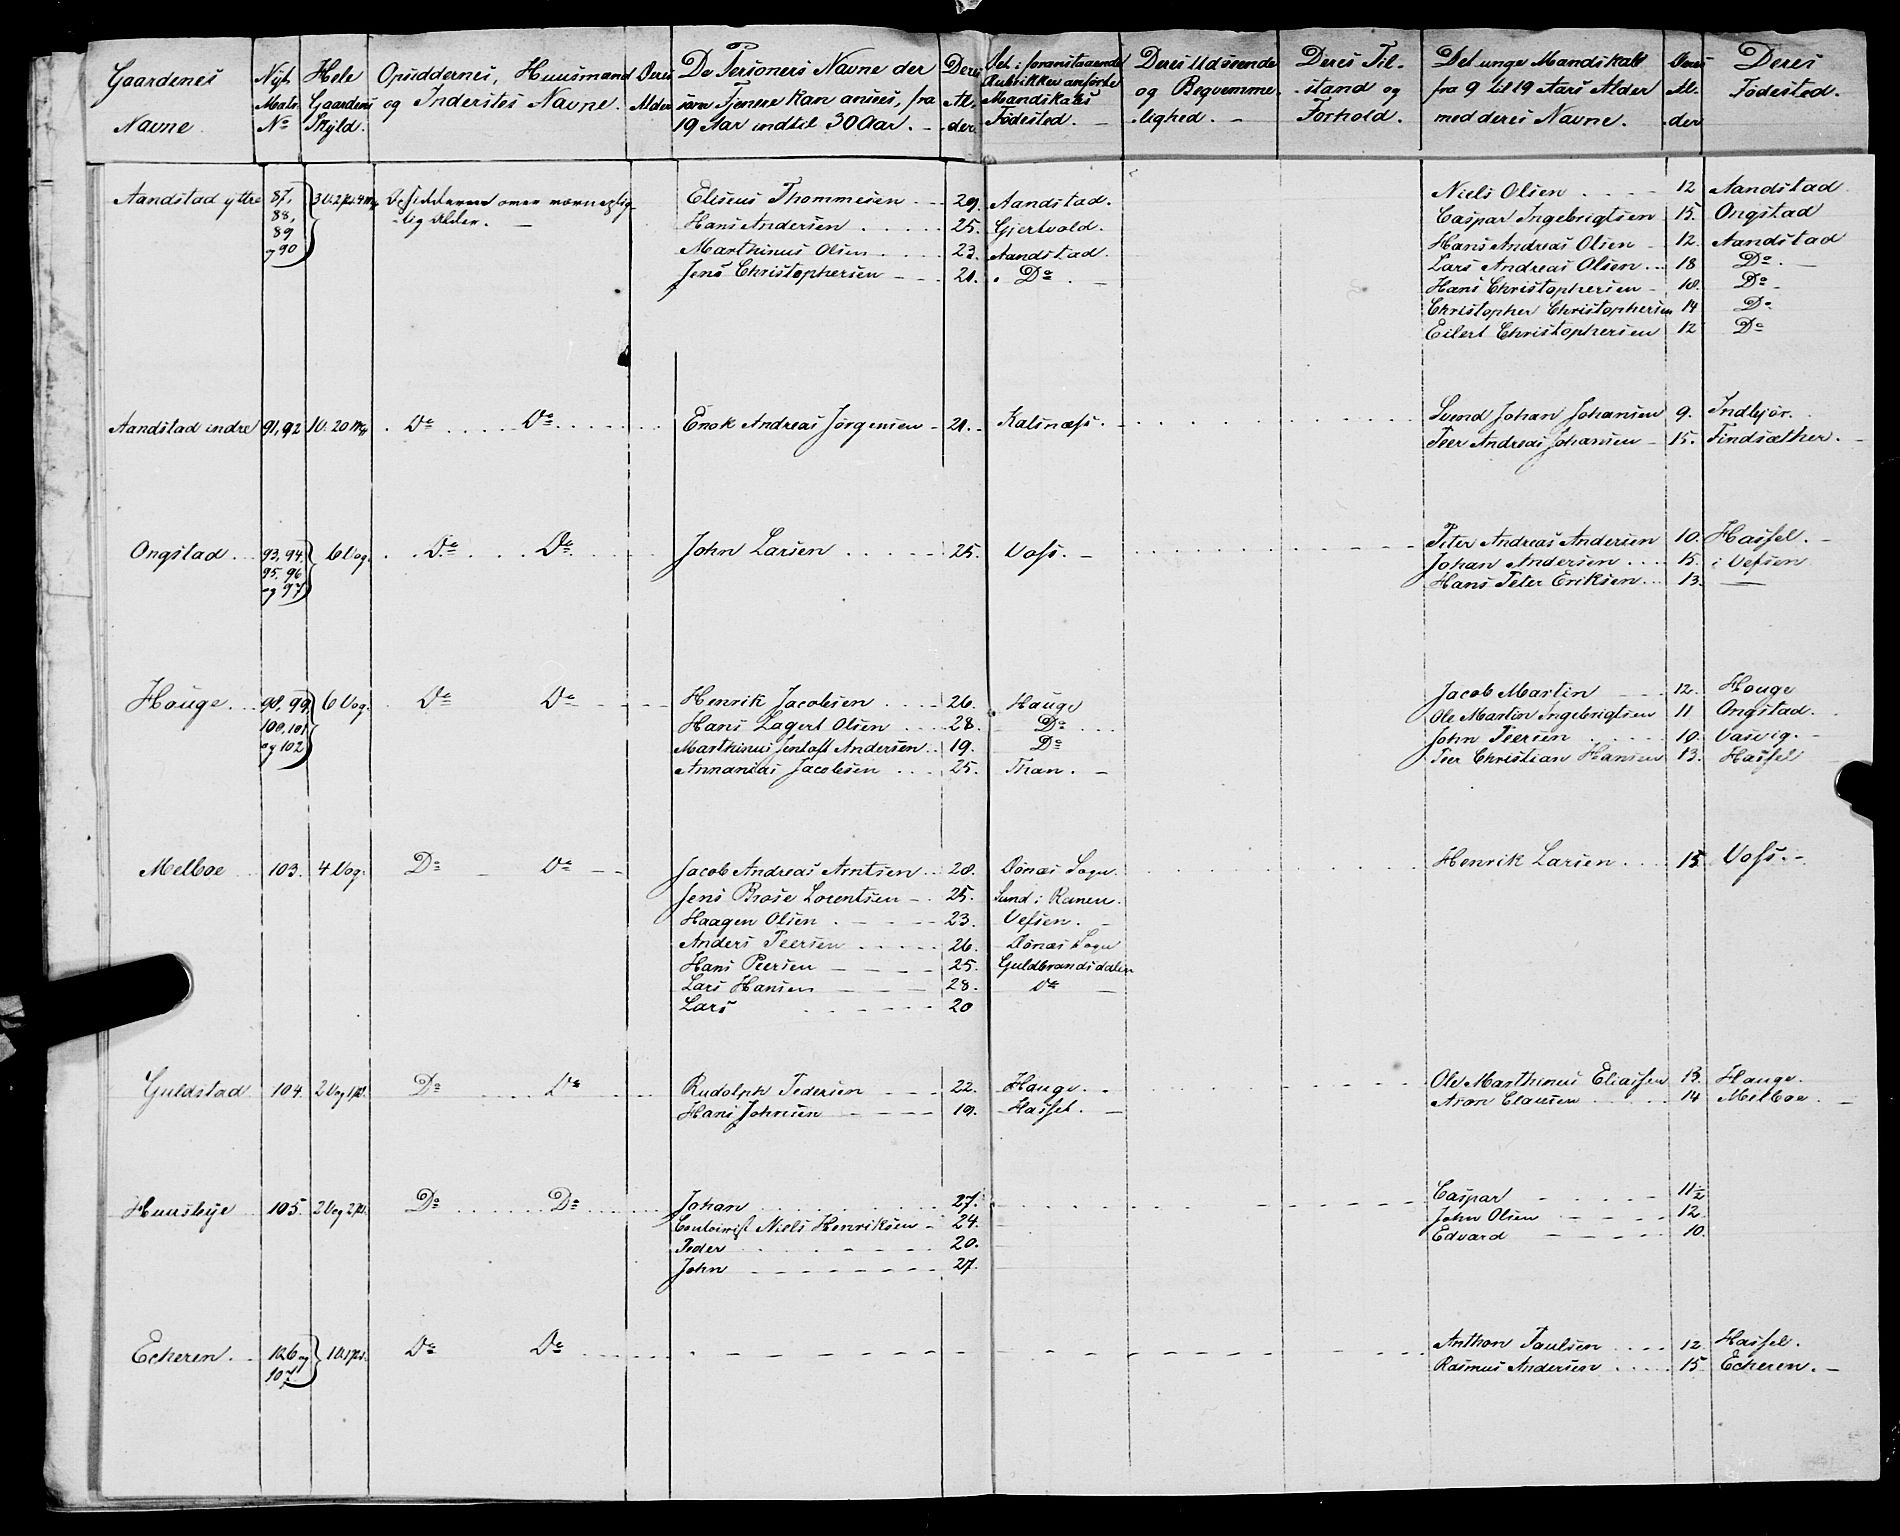 Gaardenes Navne. Nyt Matr. No Hele Gaardens Skyld. Opsiddernes, Huusmænd og Inderstes Navne. Deres Alder De Personers Navne der som Tjenere kan ansees, fra 19 Aar indtil 30 Aar. Deres Al-der. Det i foranstaaende Rubrikker anførte Mandskabs Fødested. Deres Udseende og Beqvemme-lighed. Deres Til-stand og Forhold. Det unge Mandskab fra 9 til 19 Aars Alder med deres Navne. Deres Al-der Deres Fødested.
Aandstad yttre 87, 88, 89 og 90 Eliseus Thommesen 29. Aandstad. Niels Olsen 12 Aandstad
Hans Andersen 25. Gjertvold. Caspar Ingebrigtsen 15. Ongstad
Marthinus Olsen 23. Aandstad. Hans Andreas Olsen 12. Aandstad
Jens Christophersen 21. Do. Lars Andreas Olsen 18 Do.
Hans Christophersen 18. Do
Christopher Christophersen 14 Do
Eilert Christophersen 12 Do
Aandstad indre 91, 92 Do Do Enok Andreas Jørgensen 21. Kalsnæss. Svend Johan Johansen 9. Indbjør.
Peer Andreas Johansen 15. Findsæther.
Ongstad 93, 94, 95, 96 og 97 6 Vog. Do Do John Larsen 25. Voss. Peter Andreas Andersen 10. Hassel.
Johan Andersen 15. i Vefsen
Hans Peter Eriksen 13.
Houge 98, 99, 100, 101 og 102 6 Vog. Do Do Henrik Jacobsen 26. Hauge Jacob Martin 12. Houge
Hans Zagert Olsen 28. Do Ole Martin Ingebrigtsen 11 Ongstad.
Marthinus Jentoft Andersen 19. Do John Peersen 10. Vasvig.
Annanias Jacobsen 25. Than. Peer Christian Hansen 13. Hassel
Melboe 103. 4 Vog. Do Do Jacob Andreas Arntsen 28. Dønæs Sogn. Henrik Larsen 15 Voss.
Jens Brose Lorentsen 25. Sund i Ranen.
Haagen Olsen 23. Vefsen.
Anders Peersen 26. Dønæs Sogn
Hans Peersen 25. Guldbrandsdalen
Lars Hansen 28. Do
Lars 20
Guldstad 104. 2 Vog 1 pd. Do Do Rudolph Pedersen 22. Hauge. Ole Marthinus Eliassen 13. Hauge.
Hans Johnsen 19. Hassel. Aron Clausen 14 Melboe.
Huusbye 105. 2 Vog 2 pd. Do Do Johan 27. Caspar 11½
Contoirist Niels Henriksen 24. John Olsen 12.
Peder 20. Edvard 10.
John 27.
Echeren 106 og 107. Do Do Anthon Paulsen 12. Hassel.
Rasmus Andersen 15 Echeren.